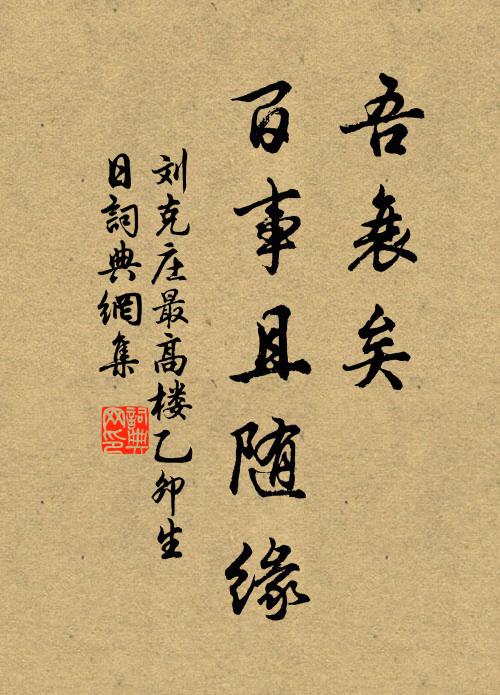 吾衰矣
百事且随缘
刘克庄最高楼乙卯生
日詞典網集
詞典
网印